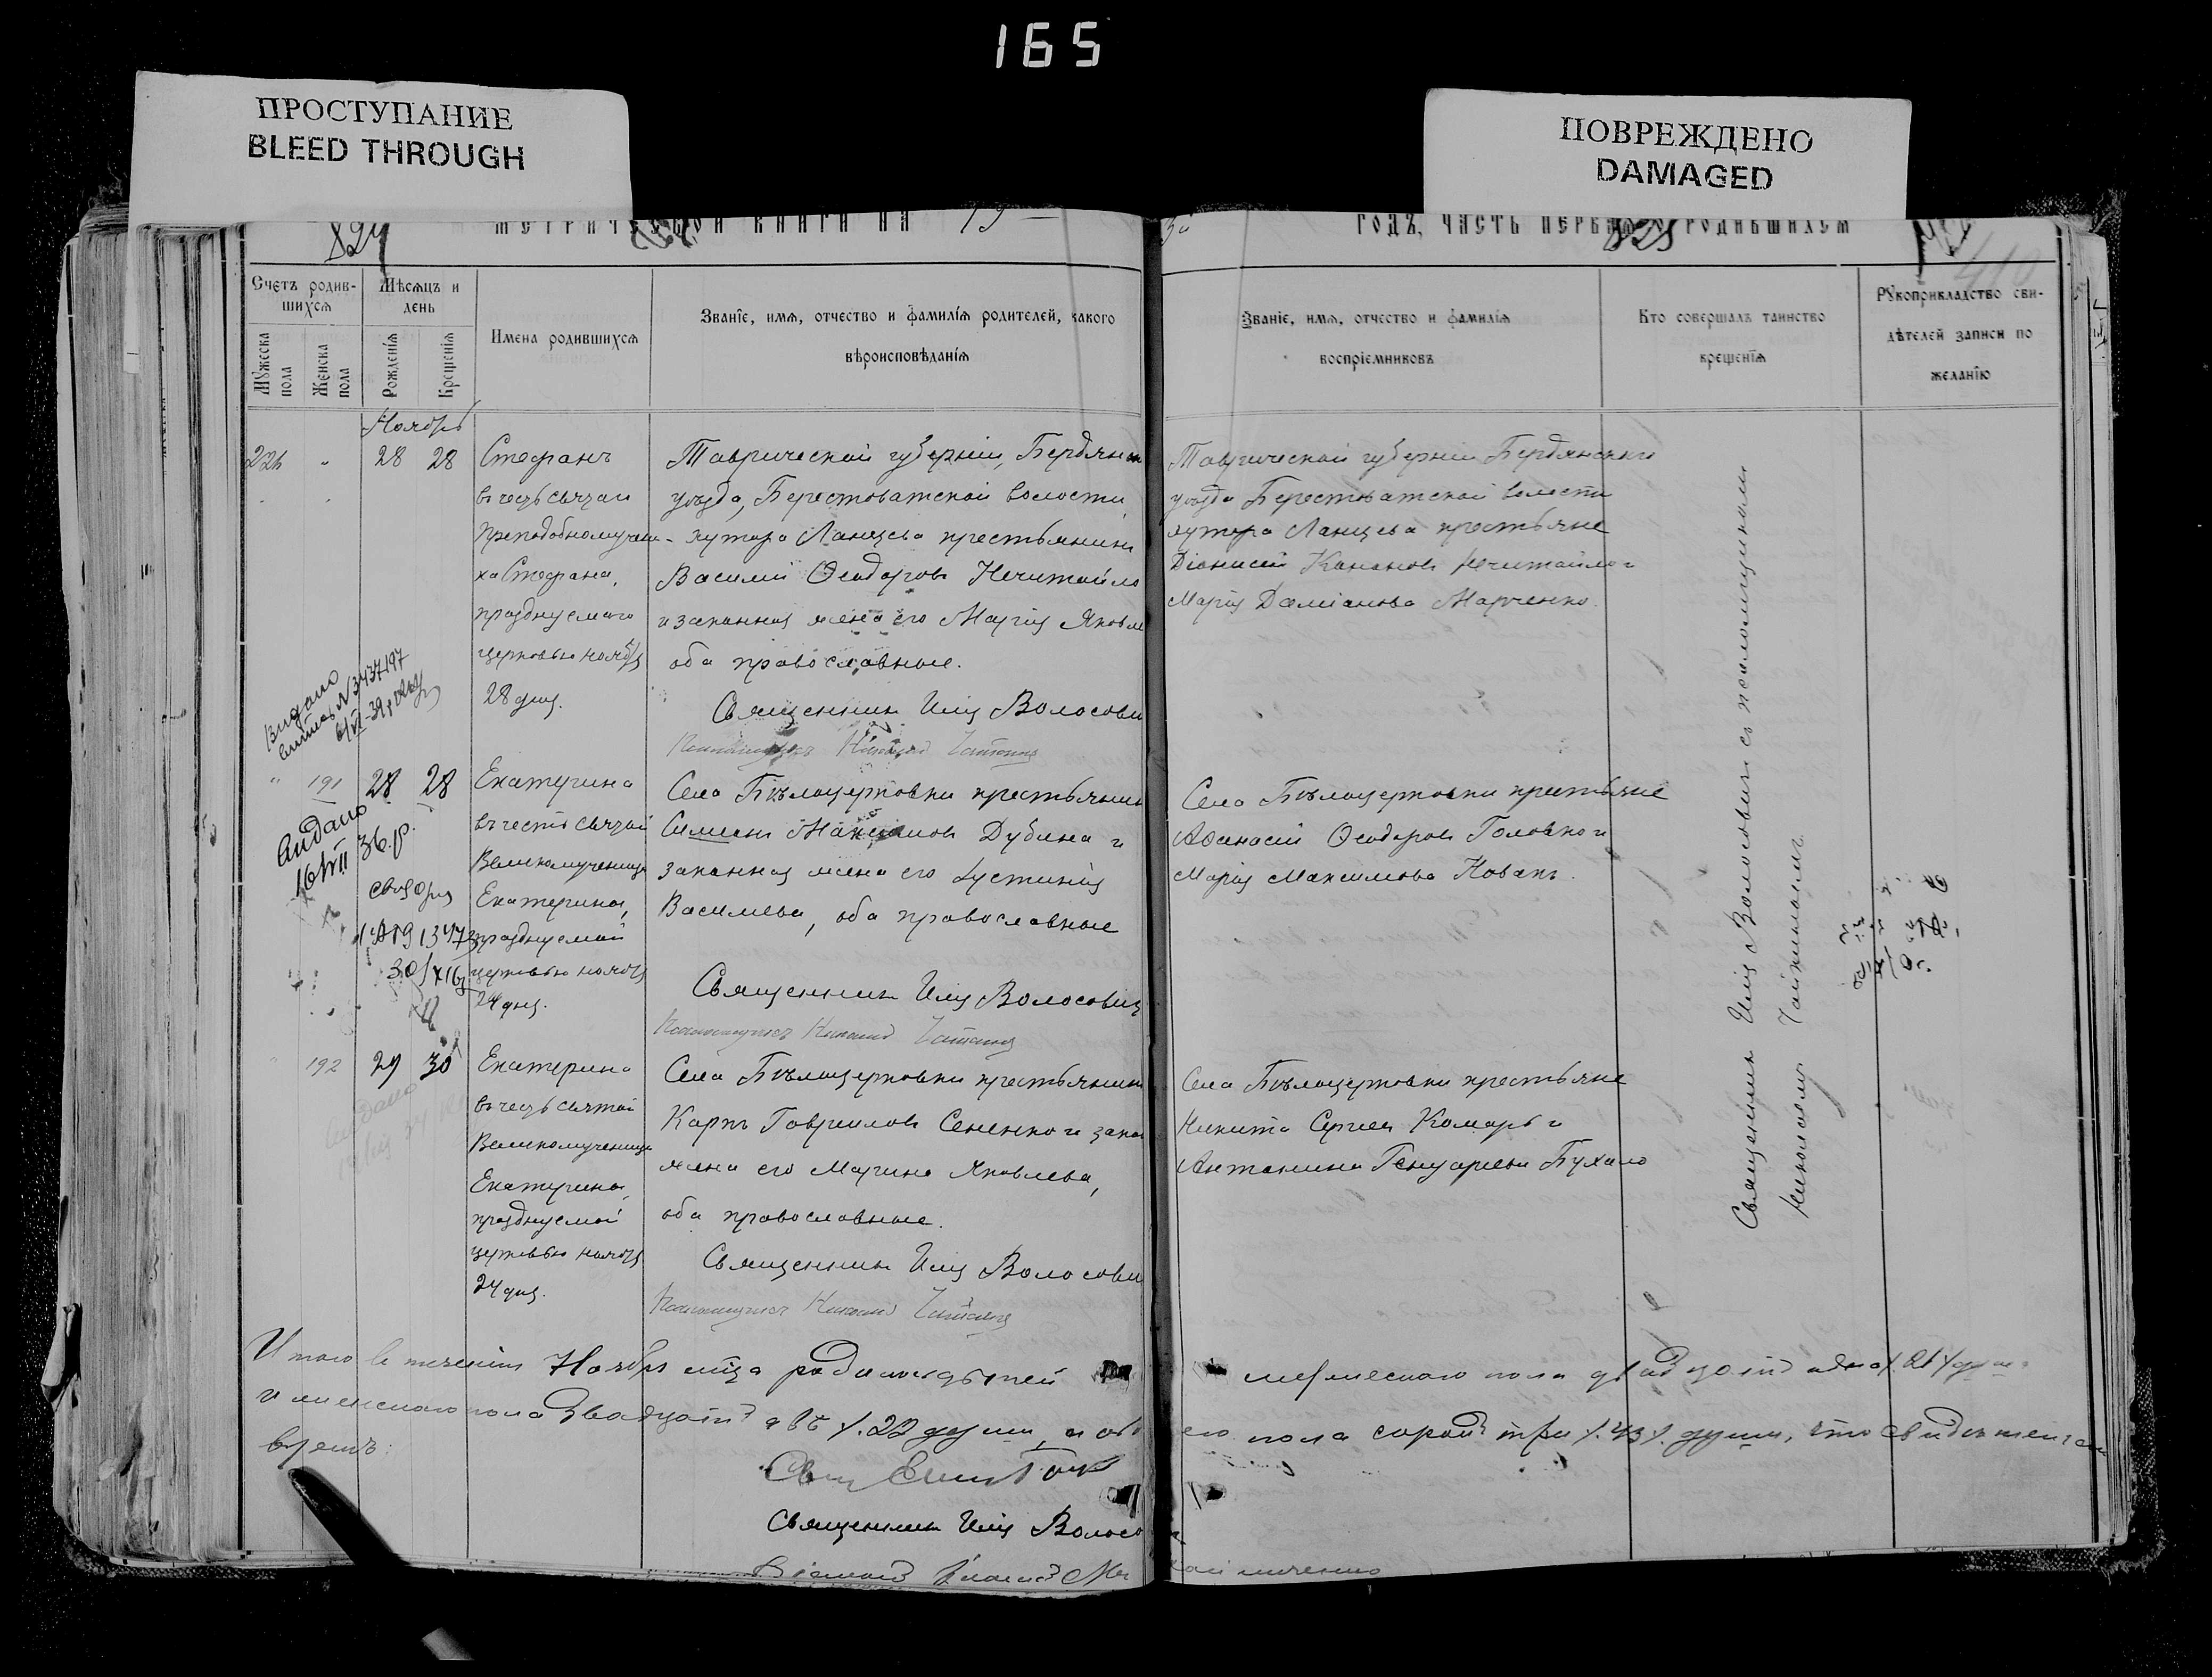 165
ПРОСТУПАНИЕ
BLEED THROUGH
ПОВРЕЖДЕНО
DAMAGED
824
МЕТРИЧЕСКОЙ КНИГИ НА 19
ГОДЪ, ЧАСТЬ ПЕРВАЯ О РОДИВШИХСЯ
825
410
Счетъ родив-
шихся
Мужеска
пола
Женска
пола
Мѣсяцъ и
день
Рожденія
Крещенія
Имена родившихся
Званіе, имя, отчество и фамилія родителей, какого
вѣроисповѣданія
Званіе, имя, отчество и фамилія
воспріемниковъ
Кто совершалъ таинство
крещенія
Рукоприкладство сви-
дѣтелей записи по
желанію
Ноябрь
28 28
Стефанъ
въ честь святаго
преподобномучени-
ка Стефана,
празднуемаго
церковью ноября
28 дня.
Таврической губерніи, Бердянск
уѣзда, Берестоватской волости,
хутора Ланцева крестьянинъ
Василій Ѳеодоровъ Нечитайло
и законная жена его Марія Яковле
оба православные.
Священникъ Илія Волосови
Псаломщикъ Николай
Таврической губерніи Бердянскаго
уѣзда Берестоватской волости
хутора Ланцева крестьяне
Діонисій Кононовъ Нечитайло и
Марія Даміанова Марченко.
Видано
191 28 28
Видано
36 р.
Екатерина
въ честь святой
Великомученицы
Екатерины,
празднуемой
церковью ноября
24 дня.
Села Бѣлоцерковки крестьянинъ
Симеонъ Максимовъ Дубина и
законная жена его Іустинія
Васильева, оба православные
Священникъ Илія Волосовичъ
Псаломщикъ Николай
Села Бѣлоцерковки крестьяне
Аѳанасій Ѳеодоровъ Головко и
Марія Максимова Ковань.
192 29 30
Екатерина
въ честь святой
Великомученицы
Екатерины,
празднуемой
церковью ноября
24 дня.
Села Бѣлоцерковки крестьянинъ
Карпъ Гавриловъ Сененко и зако
жена его Марина Яковлева,
оба православные.
Священникъ Илія Волосови
Псаломщикъ Николай
Села Бѣлоцерковки крестьяне
Никита Сергіевъ Комаръ и
Антонина Генуаріева Бухало
Священникъ Илія Волосовичъ съ псаломщикомъ
Николаемъ
Итого въ теченіи Ноября м-ца родилось дѣтей
мужескаго пола двадцать одна /. 21 / душа
и женскаго пола двадцать двѣ /. 22 души, а обо
его пола сорокъ три /. 43 /. души, что свидѣтельст
вуемъ:
Священникъ Илія Волосо